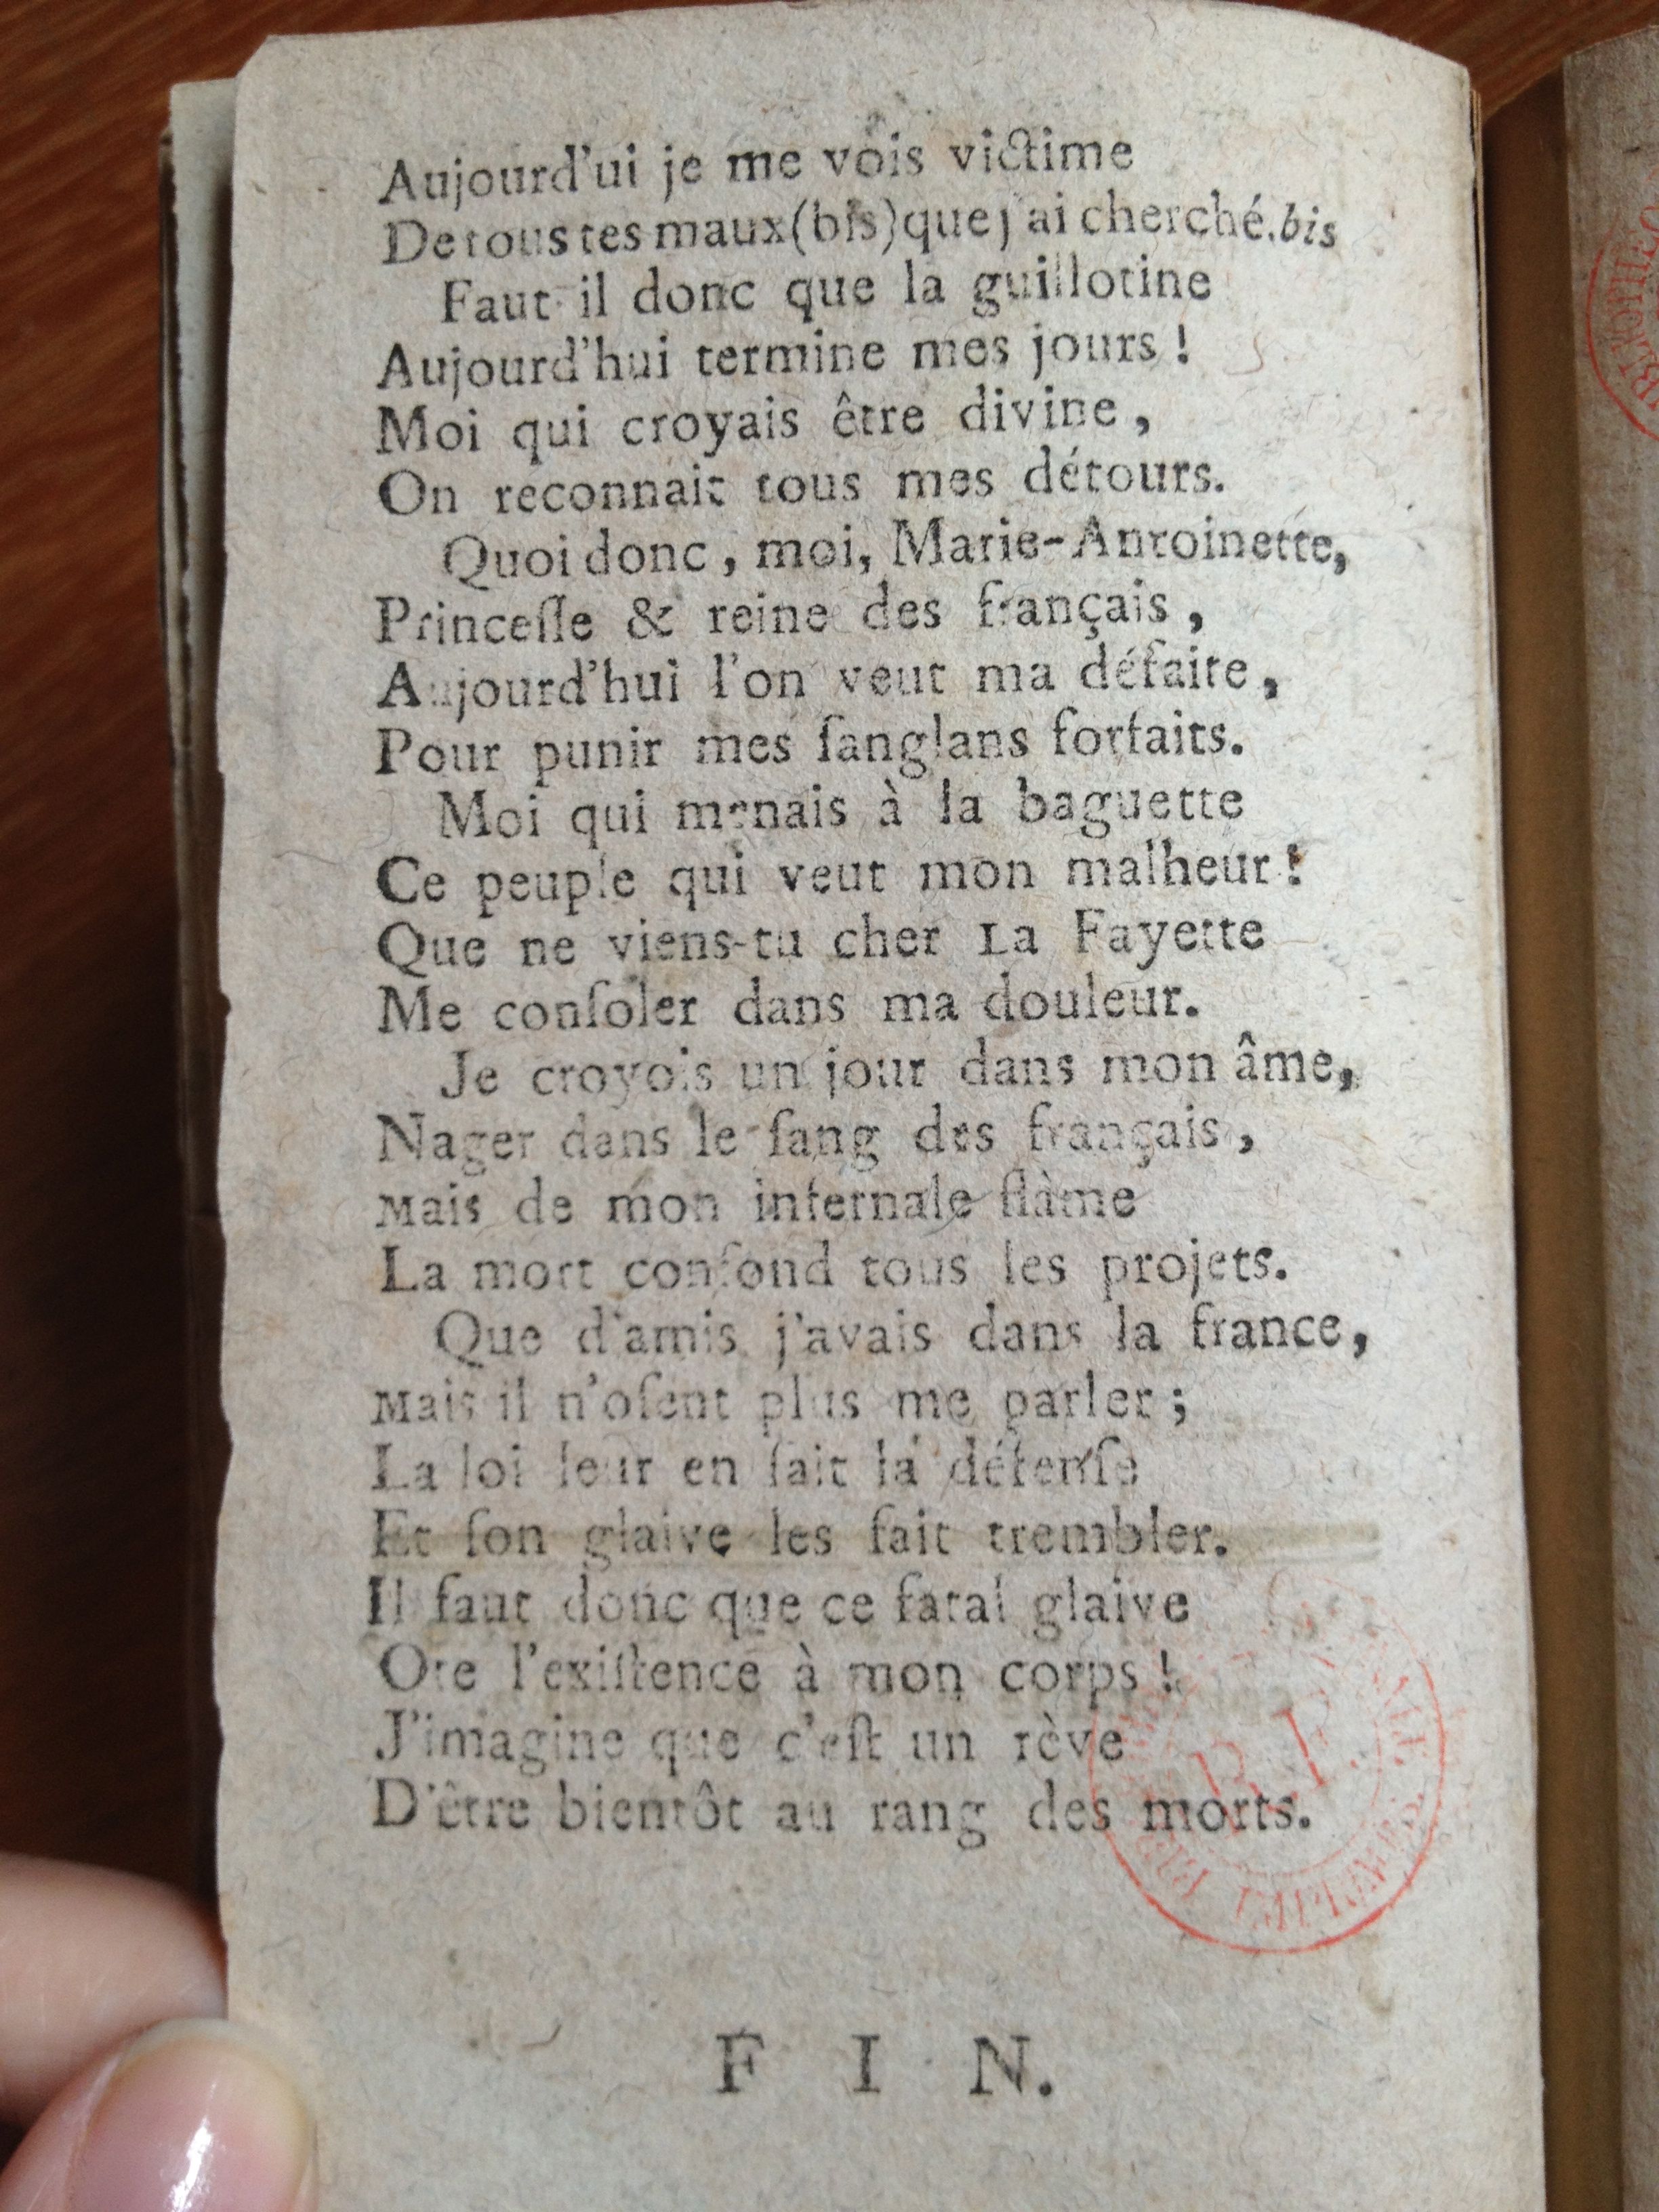 Aujourd'ui je me vois victime
De tous tes maux (bis) que j'ai cherché. bis
Faut-il donc que la guillotine
Aujourd'hui termine mes jours !
Moi qui croyais être divine ,
On reconnait tous mes détours.
Quoi donc , moi, Marie-Antoinette,
Princeſſe & reine des français ,
Aujourd'hui l'on veut ma défaite ,
Pour punir mes ſanglans forfaits.
Moi qui menais à la baguette
Ce peuple qui veut mon malheur !
Que ne viens-tu cher La Fayette
Me conſoler dans ma douleur.
Je croyois un jour dans mon âme,
Nager dans le ſang des français ,
Mais de mon infernale flàme
La mort confond tous les projets.
Que d'amis j'avais dans la france,
Mais il n'oſent plus me parler ;
La loi leur en fait la défenſe
Et ſon glaive les fait trembler.
Il faut donc que ce fatal glaive
Ote l'exiſtence à mon corps !
J'imagine que c'eſt un rève
D'être bientôt au rang des morts.
B.I.
FIN.